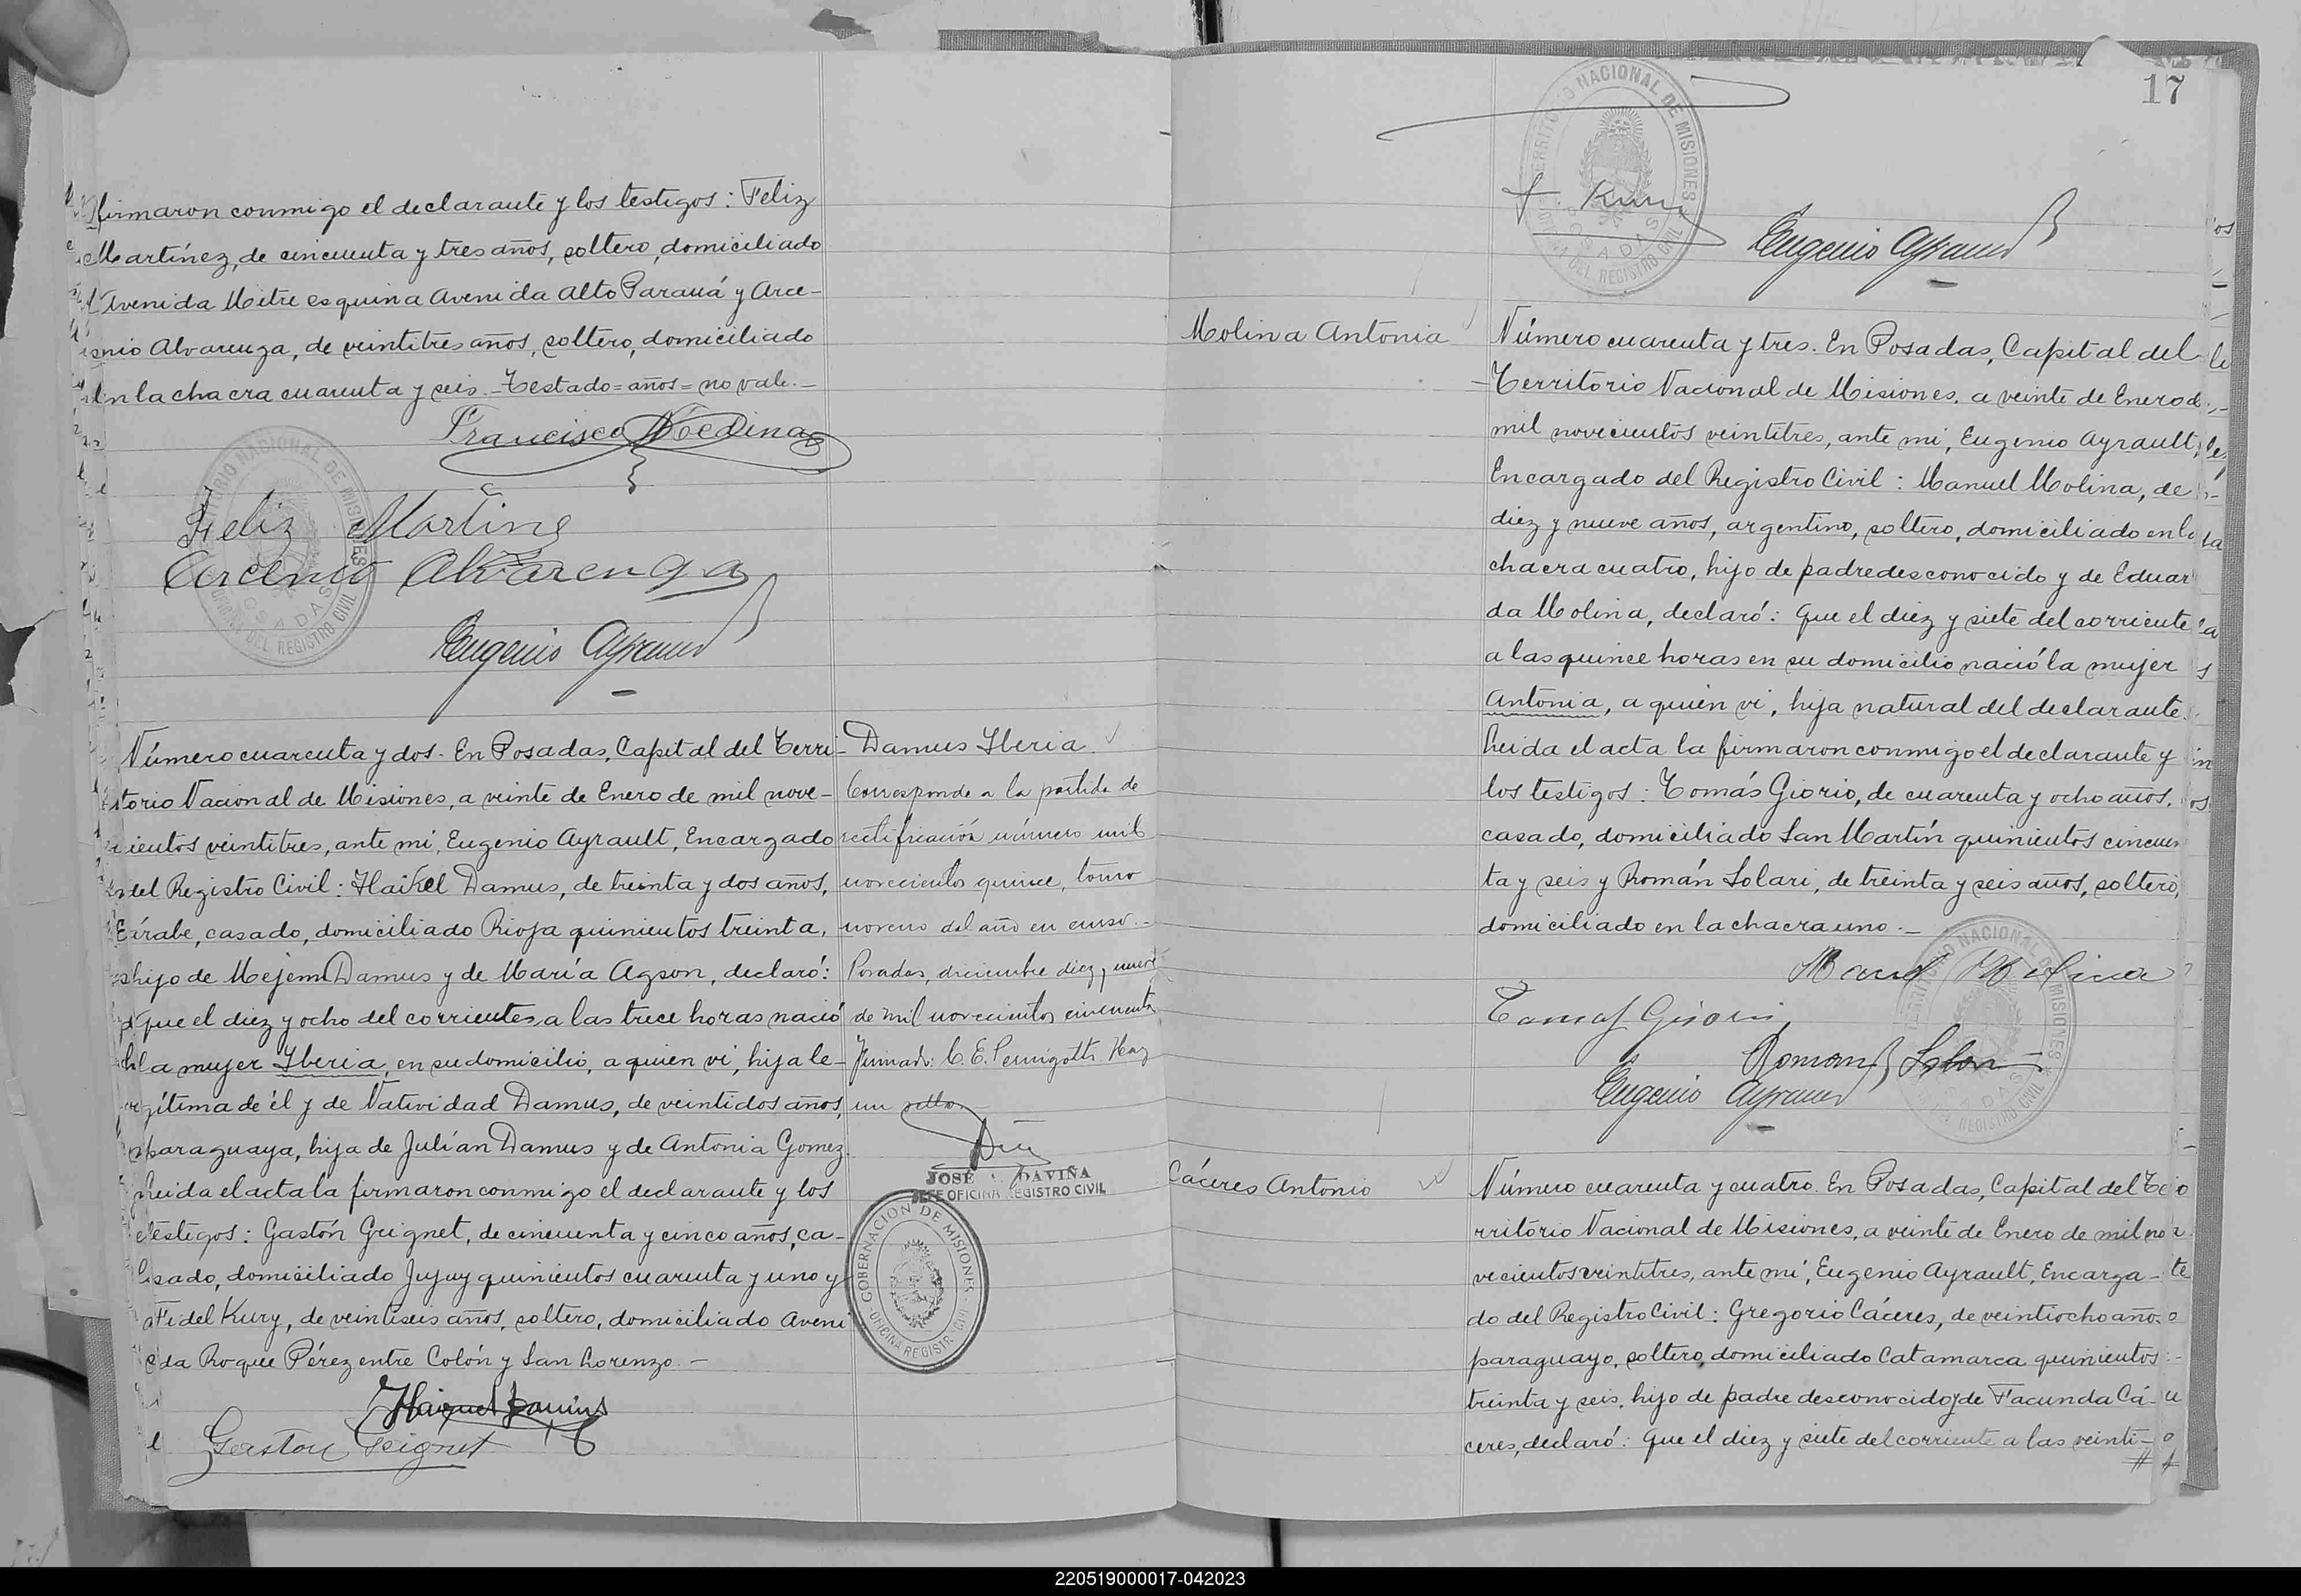 firmaron conmigo el declarante y los testigos: Feliz
Martínez, de cincuenta y tres años, soltero, domiciliado
Avenida Mitre esquina Avenida Alto Paraná y Arce-
nio Alvarenga, de veintitres años, soltero, domiciliado
en la chacra cuarenta y seis.- Testado=años=no vale.-
Francisco Medina
Feliz Martine
Arcenio Alvarenga
Eugenio Ayrault
TERRITORIO NACIONAL DE MISIONES
POSADAS
OFICINA DEL REGISTRO CIVIL
Número cuarenta y dos. En Posadas, Capital del Terri-
torio Nacional de Misiones, a veinte de Enero de mil nove-
cientos veintitres, ante mí, Eugenio Ayrault, Encargado
del Registro Civil: Haikel Damus, de treinta y dos años,
árabe, casado, domiciliado Rioja quinientos treinta,
hijo de Mejem Damus y de María Agson, declaró:
que el diez y ocho del corriente, a las trece horas nació
la mujer Iberia, en su domicilio, a quien vi, hija le-
gítima de él y de Natividad Damus, de veintidos años,
paraguaya, hija de Julián Damus y de Antonia Gomez.
Leida el acta la firmaron conmigo el declarante y los
testigos: Gastón Greignet, de cincuenta y cinco años, ca-
sado, domiciliado Jujuy quinientos cuarenta y uno y
Fidel Kury, de veintiseis años, soltero, domiciliado Aveni
da Roque Pérez entre Colón y San Lorenzo.-
Haiquel Damus
Gaston Greignet
Damus Iberia.
Corresponde a la partida de
rectificación número mil
novecientos quince, tomo
noveno del año en curso.-
Posadas, diciembre diez y nueve
de mil novecientos cincuenta
Firmado: C. E. Pernigotti. Hay
un sello.
JOSÉ DAVIÑA
JEFE OFICINA REGISTRO CIVIL
GOBERNACION DE MISIONES
OFICINA REGISTRO CIVIL
17
TERRITORIO NACIONAL DE MISIONES
POSADAS
OFICINA DEL REGISTRO CIVIL
F. Kury
Eugenio Ayrault
Molina Antonia
Número cuarenta y tres. En Posadas, Capital del
Territorio Nacional de Misiones, a veinte de Enero de
mil novecientos veintitres, ante mi, Eugenio Ayrault,
Encargado del Registro Civil: Manuel Molina, de
diez y nueve años, argentino, soltero, domiciliado en la
chacra cuatro, hijo de padre desconocido y de Eduar
da Molina, declaró: Que el diez y siete del corriente
a las quince horas en su domicilio nació la mujer
Antonia, a quien vi, hija natural del declarante.
Leida el acta la firmaron conmigo el declarante y
los testigos: Tomás Giorio, de cuarenta y ocho años,
casado, domiciliado San Martín quinientos cincuen
ta y seis y Román Solari, de treinta y seis años, soltero,
domiciliado en la chacra uno.-
Manuel Molina
Tomas Giorio
Roman Solari
Eugenio Ayrault
Cáceres Antonio
Número cuarenta y cuatro. En Posadas, Capital del Te
rritorio Nacional de Misiones, a veinte de Enero de mil no
vecientos veintitres, ante mí, Eugenio Ayrault, Encarga-
do del Registro Civil: Gregorio Cáceres, de veintiocho años
paraguayo, soltero, domiciliado Catamarca quinientos
treinta y seis, hijo de padre desconocido y de Facunda Cá-
ceres, declaró: Que el diez y siete del corriente a las veinti-
220519000017-042023